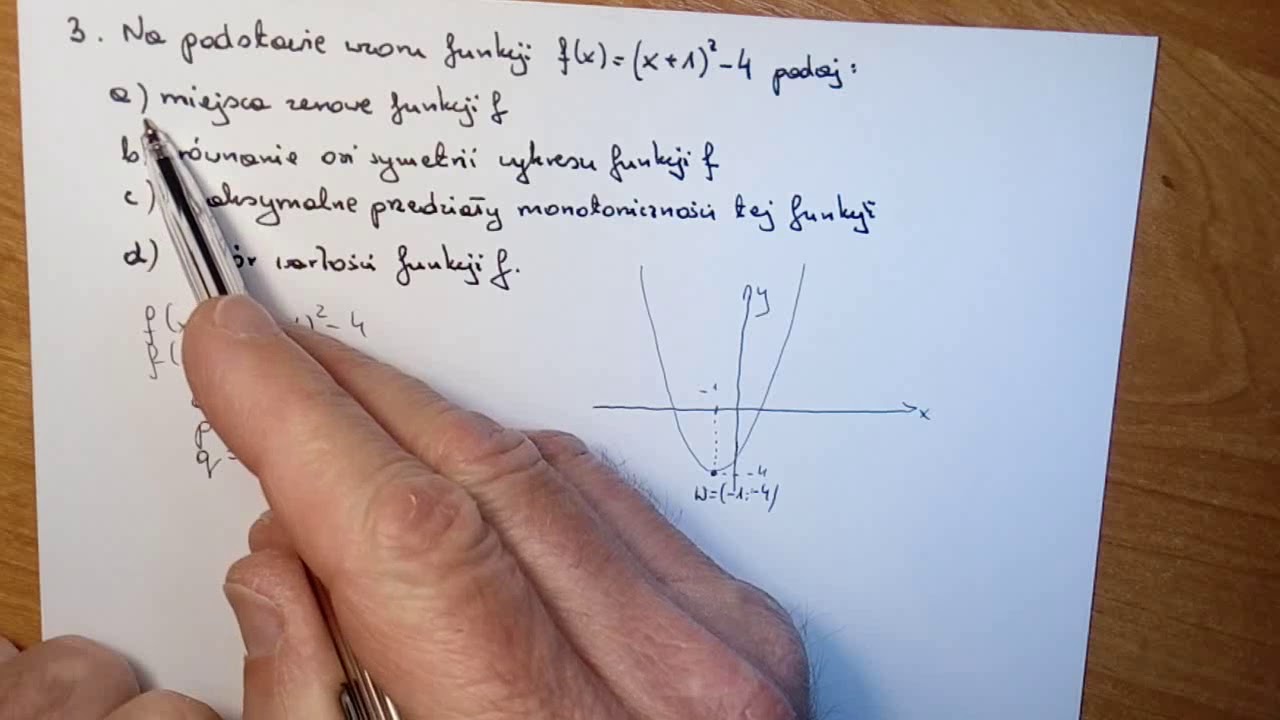 3. Na podstawie wzoru funkcji f(x)=(x+1)²-4 podaj:
a) miejsca zerowe funkcji f
b równanie osi symetrii wykresu funkcji f
c) aksymalne przedziały monotoniczności tej funkcji
d) ór wartości funkcji f.
f( )²-4
f(
p
q =
y
-1
x
-4
W=(-1;-4)